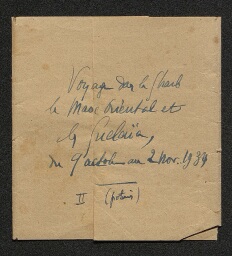 Voyage dans le Gharb
le Maroc Oriental et
les Guelaïa,
du 9 octobre au 2 Nov. 1939
II (potins)